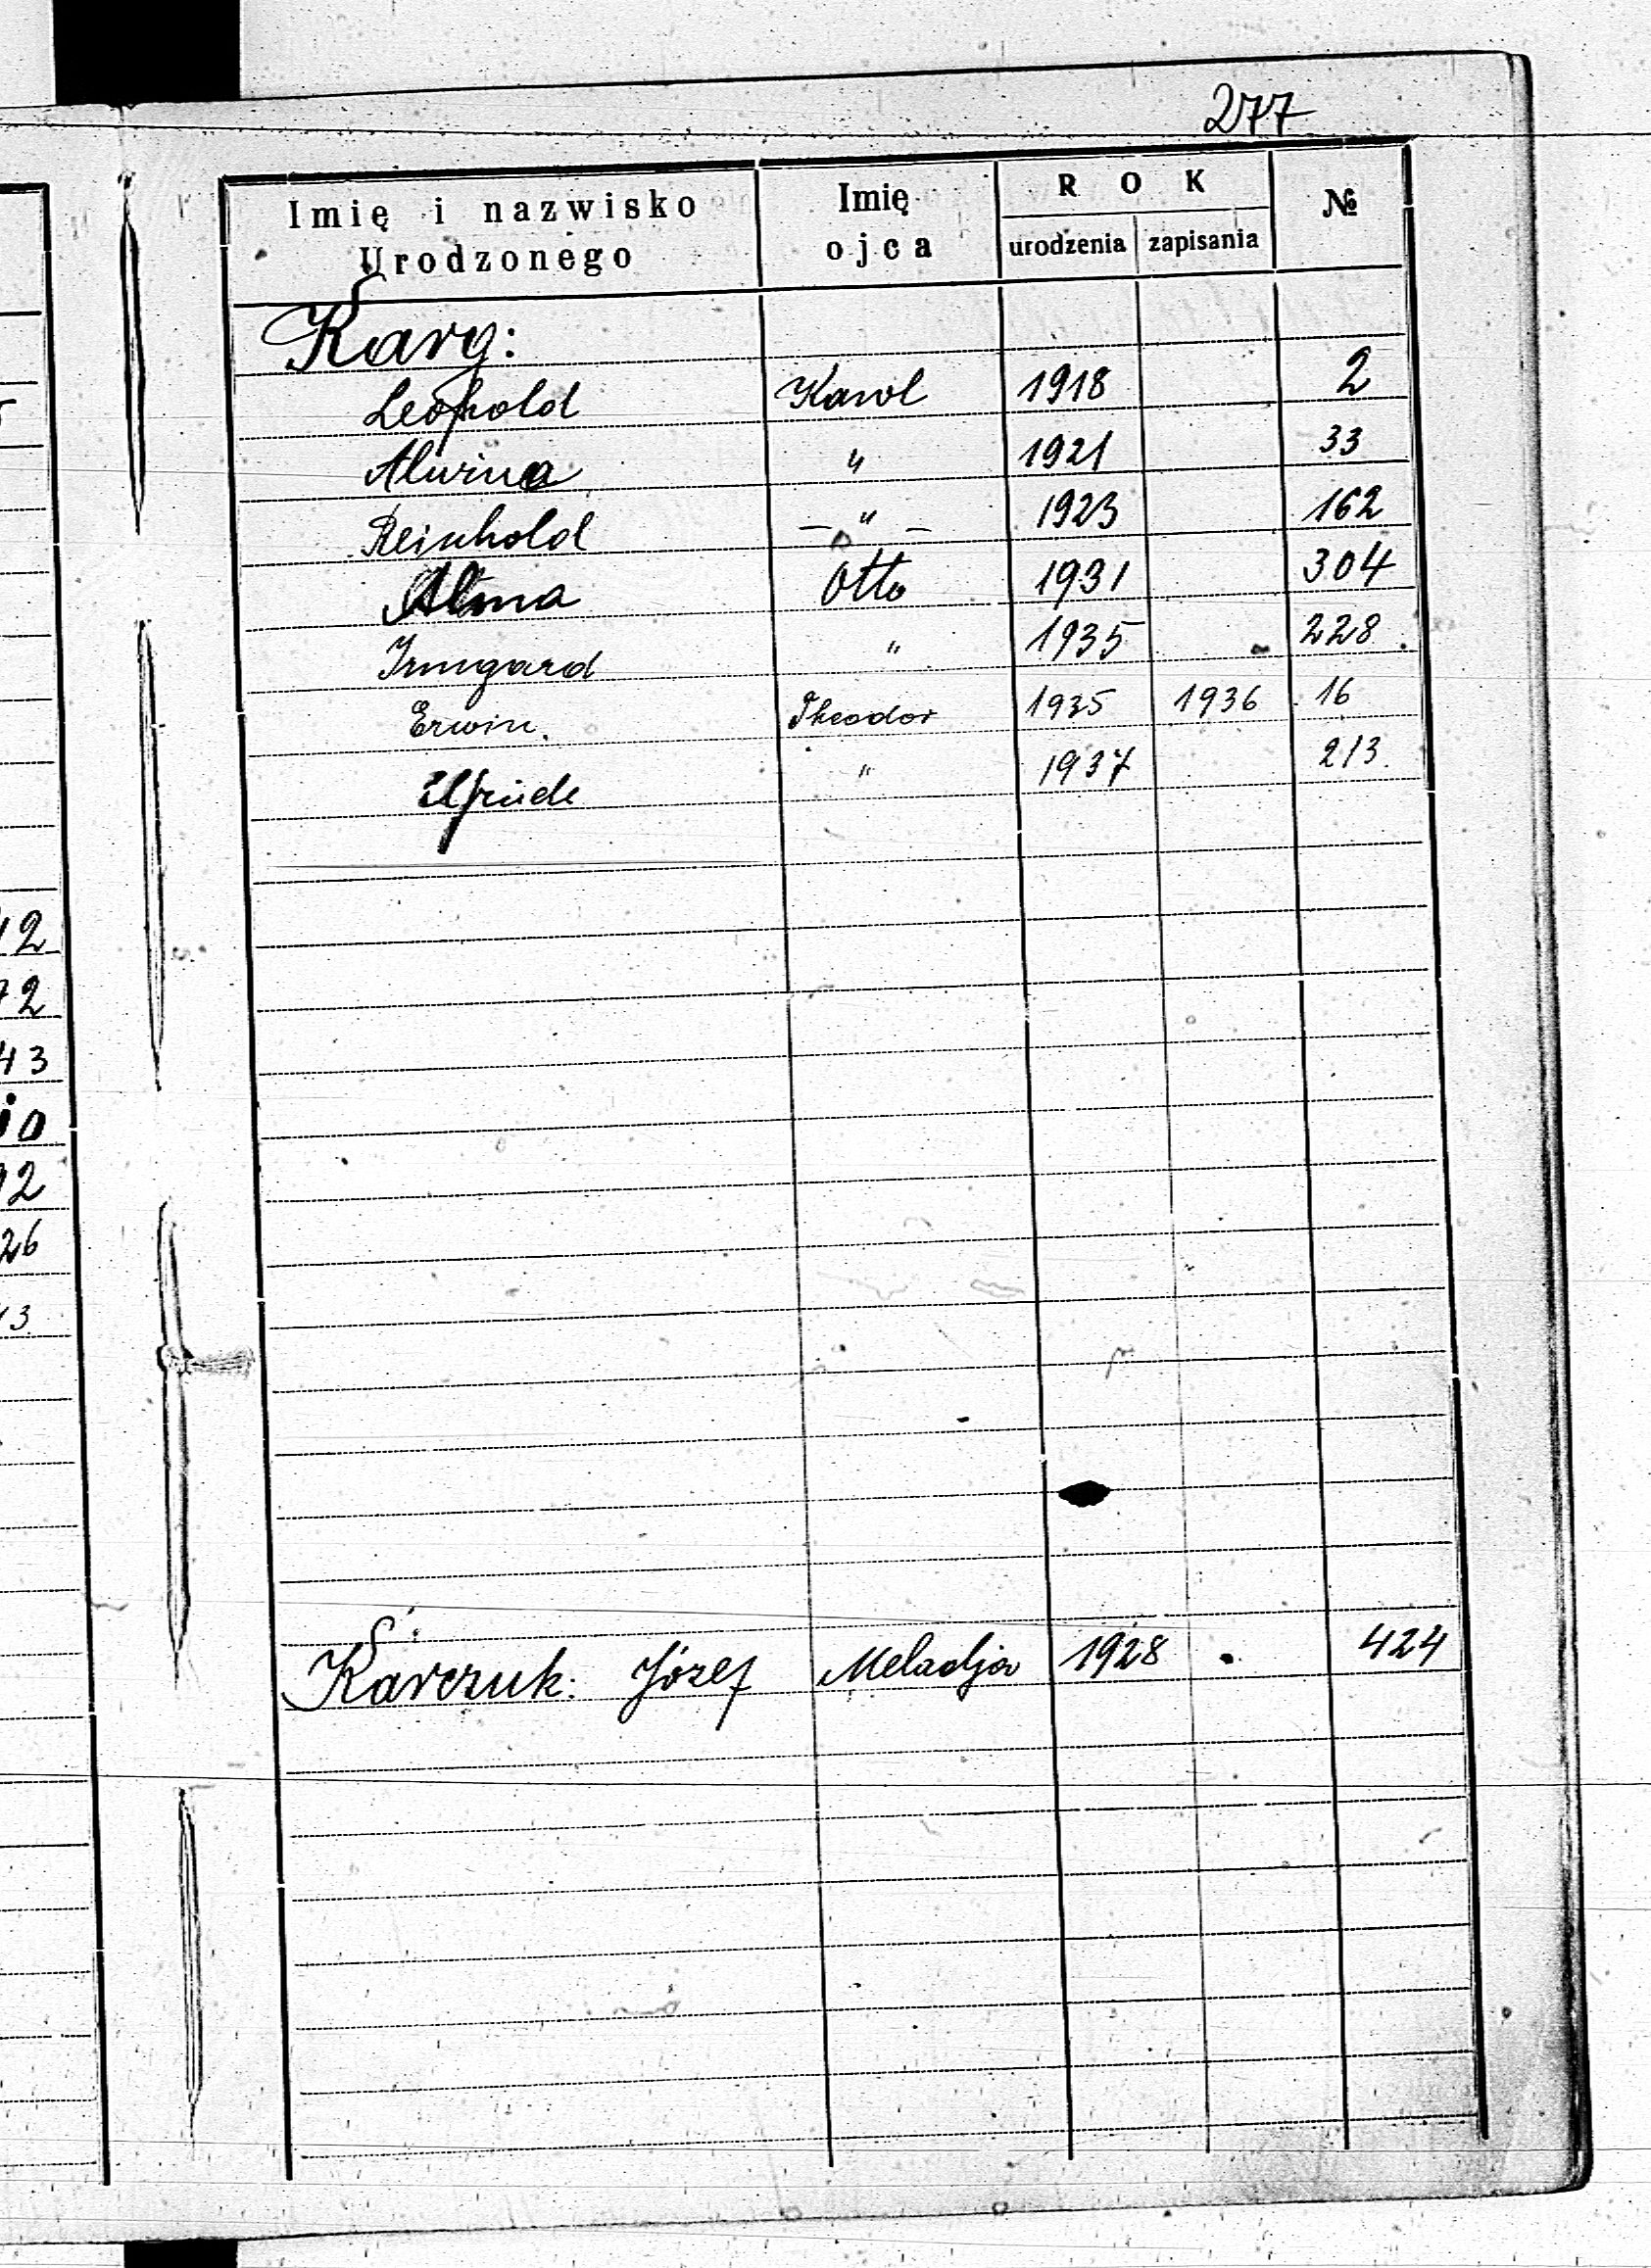 277
Imię i nazwisko Urodzonego | Imię ojca | ROK urodzenia | zapisania | №
Karg:
Leopold Karol 1918 2
Alwina " 1921 33
Reinhold – " – 1923 162
Alma Otto 1931 304
Irmgard " 1935 228
Erwin. Theodor 1935 1936 16
Elfriede " 1937 213
12
72
43
10
12
26
13
Karczuk: Józef Meladja 1928 424